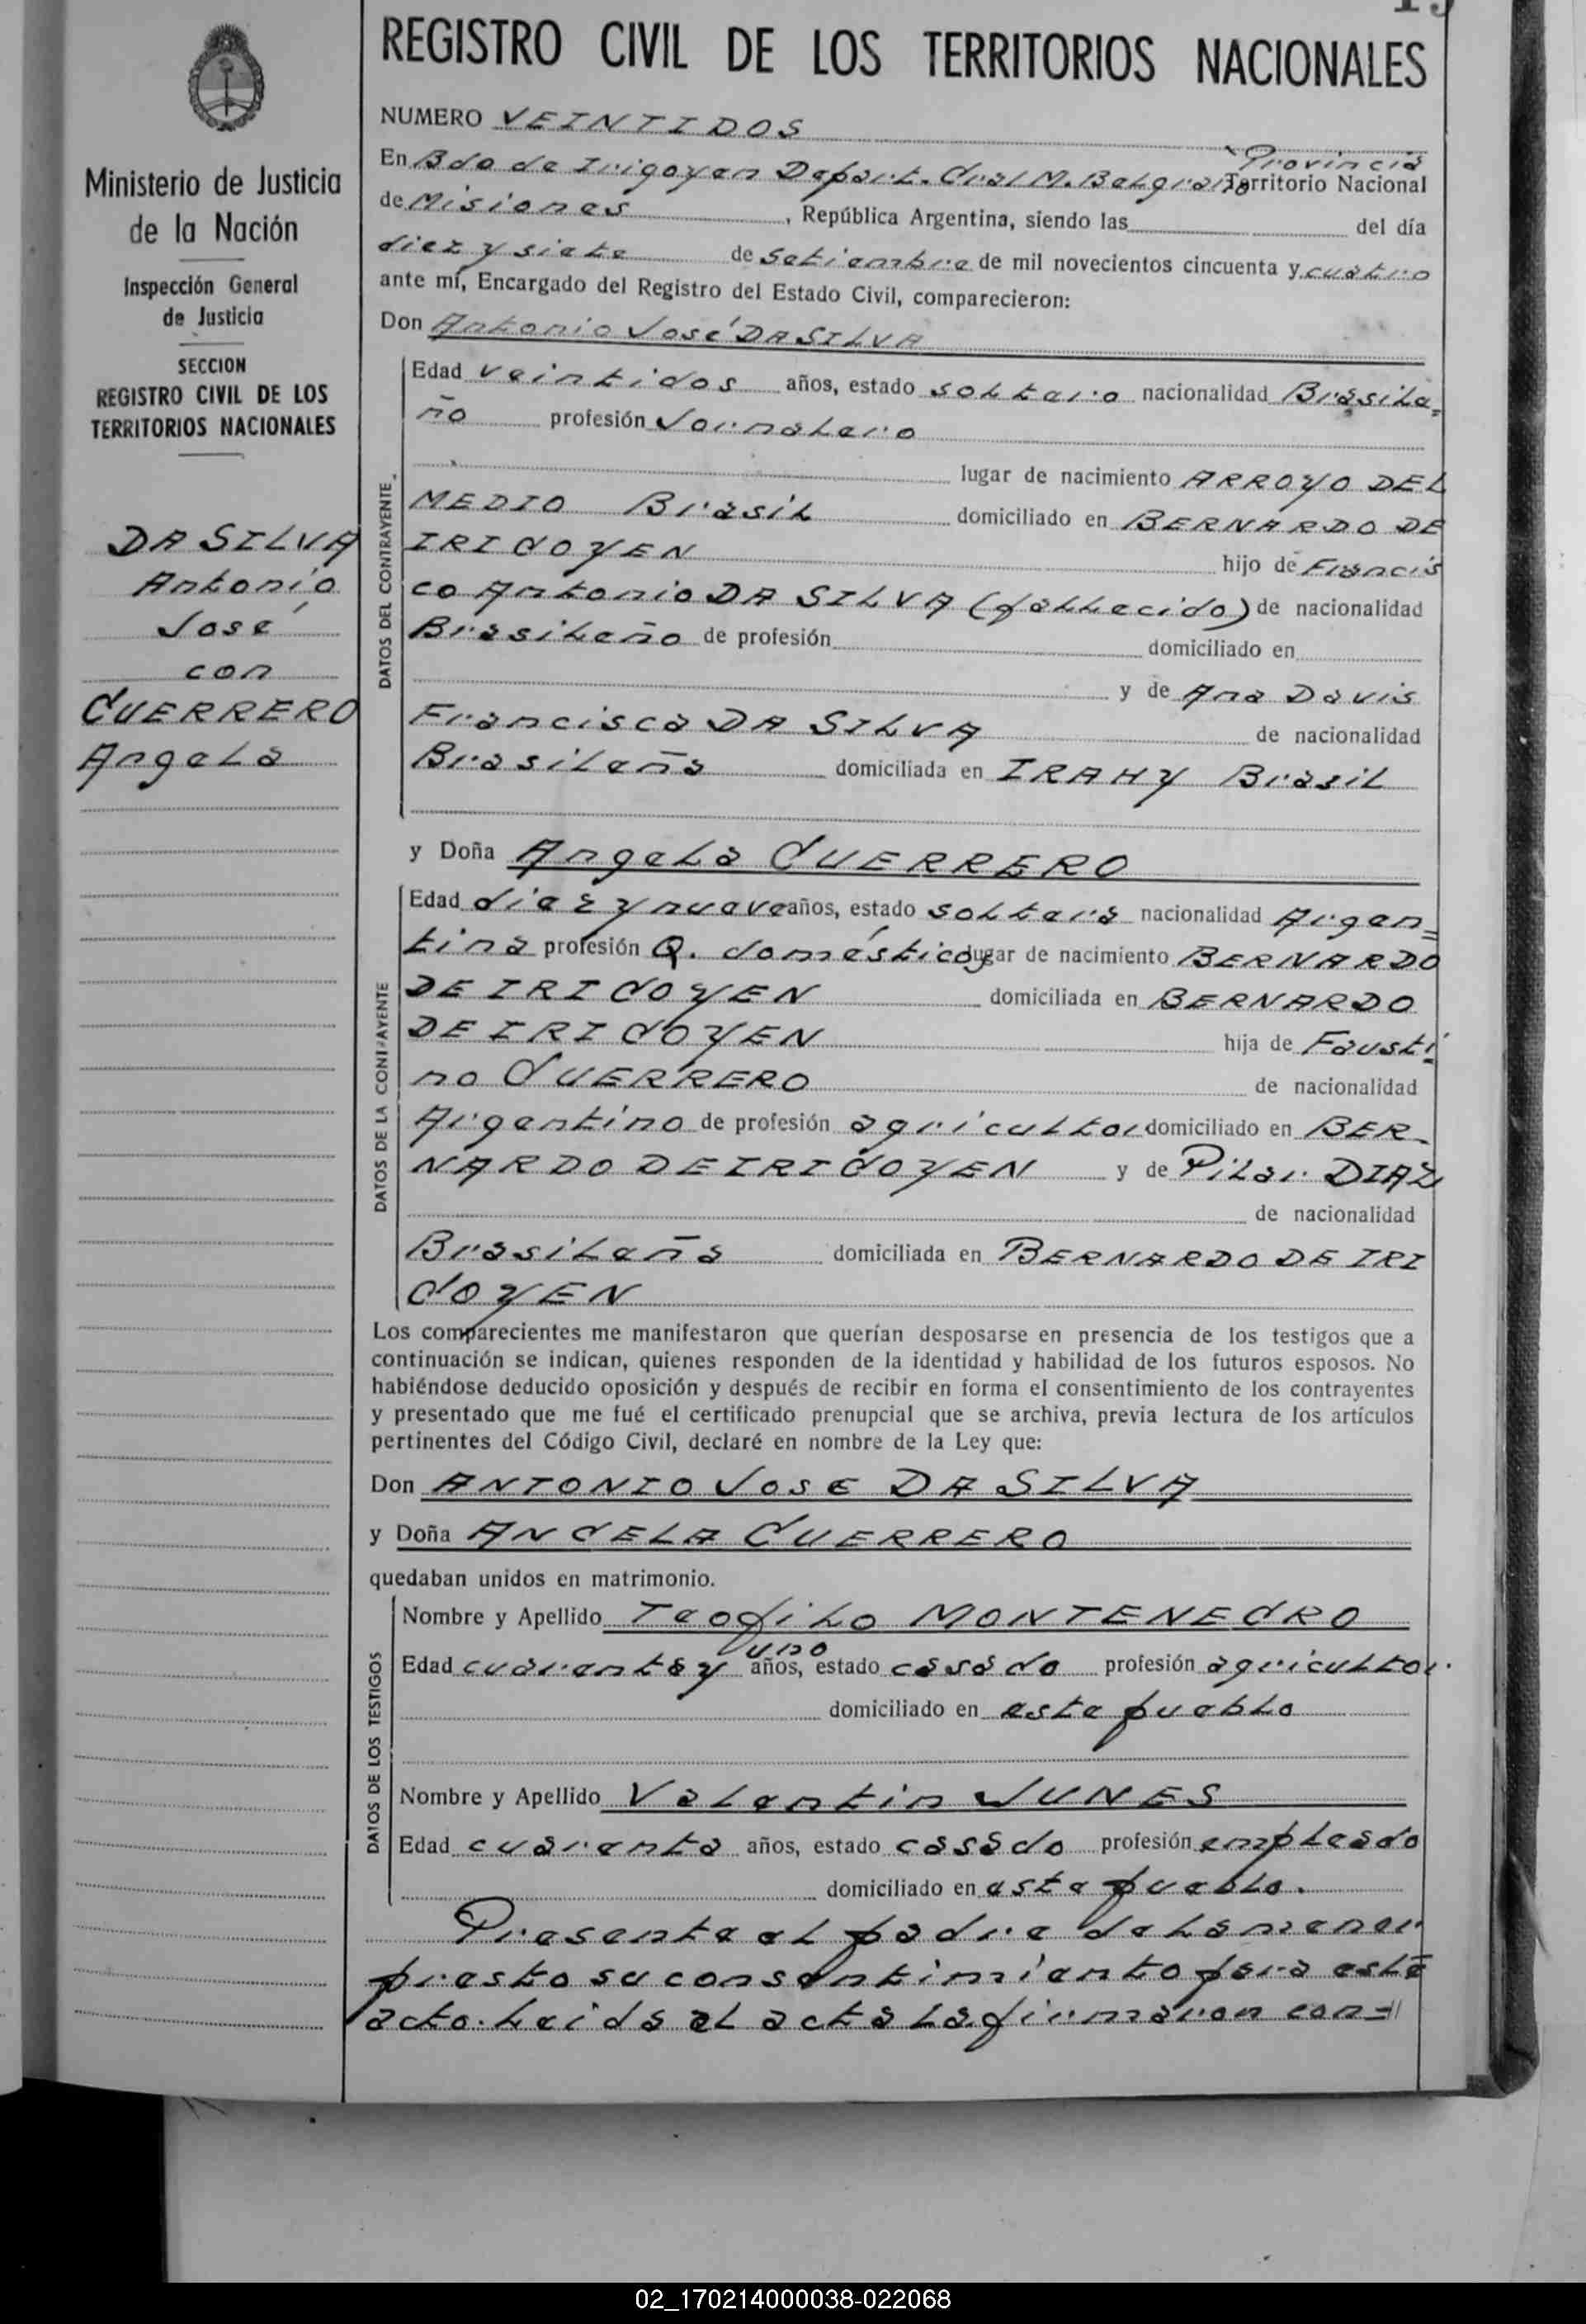 REGISTRO CIVIL DE LOS TERRITORIOS NACIONALES
Ministerio de Justicia
de la Nación
Inspección General
de Justicia
SECCION
REGISTRO CIVIL DE LOS
TERRITORIOS NACIONALES
DA SILVA
Antonio
José
con
GUERRERO
Angela
NUMERO VEINTIDOS
Provincia
En Bdo de Irigoyen Depart. Gral M. Belgrano Territorio Nacional
de Misiones, República Argentina, siendo las del día
diez y siete de Setiembre de mil novecientos cincuenta y cuatro
ante mí, Encargado del Registro del Estado Civil, comparecieron:
Don Antonio José DA SILVA
DATOS DEL CONTRAYENTE
Edad veintidos años, estado soltero nacionalidad Brasile=
ño profesión Jornalero
lugar de nacimiento ARROYO DEL
MEDIO Brasil domiciliado en BERNARDO DE
IRIGOYEN hijo de Francis
co Antonio DA SILVA (fallecido) de nacionalidad
Brasileño de profesión domiciliado en
y de Ana Davis
Francisca DA SILVA de nacionalidad
Brasileña domiciliada en IRAHY Brasil
y Doña Angela GUERRERO
DATOS DE LA CONTRAYENTE
Edad diez y nueve años, estado soltera nacionalidad Argen=
tina profesión Q. doméstico lugar de nacimiento BERNARDO
DE IRIGOYEN domiciliada en BERNARDO
DE IRIGOYEN hija de Fausti
no GUERRERO de nacionalidad
Argentino de profesión agricultor domiciliado en BER-
NARDO DE IRIGOYEN y de Pilar DIAZ
de nacionalidad
Brasileña domiciliada en BERNARDO DE IRI
GOYEN
Los comparecientes me manifestaron que querían desposarse en presencia de los testigos que a
continuación se indican, quienes responden de la identidad y habilidad de los futuros esposos. No
habiéndose deducido oposición y después de recibir en forma el consentimiento de los contrayentes
y presentado que me fué el certificado prenupcial que se archiva, previa lectura de los artículos
pertinentes del Código Civil, declaré en nombre de la Ley que:
Don ANTONIO JOSE DA SILVA
y Doña ANGELA GUERRERO
quedaban unidos en matrimonio.
DATOS DE LOS TESTIGOS
Nombre y Apellido Teofilo MONTENEGRO
uno
Edad cuarenta y años, estado casado profesión agricultor.
domiciliado en este pueblo
Nombre y Apellido Valentin JUNES
Edad cuarenta años, estado casado profesión empleado
domiciliado en este pueblo.
Presente el padre de la menor
presto su consentimiento para este
acto. Leida el acta la firmaron con=
02_170214000038-022068